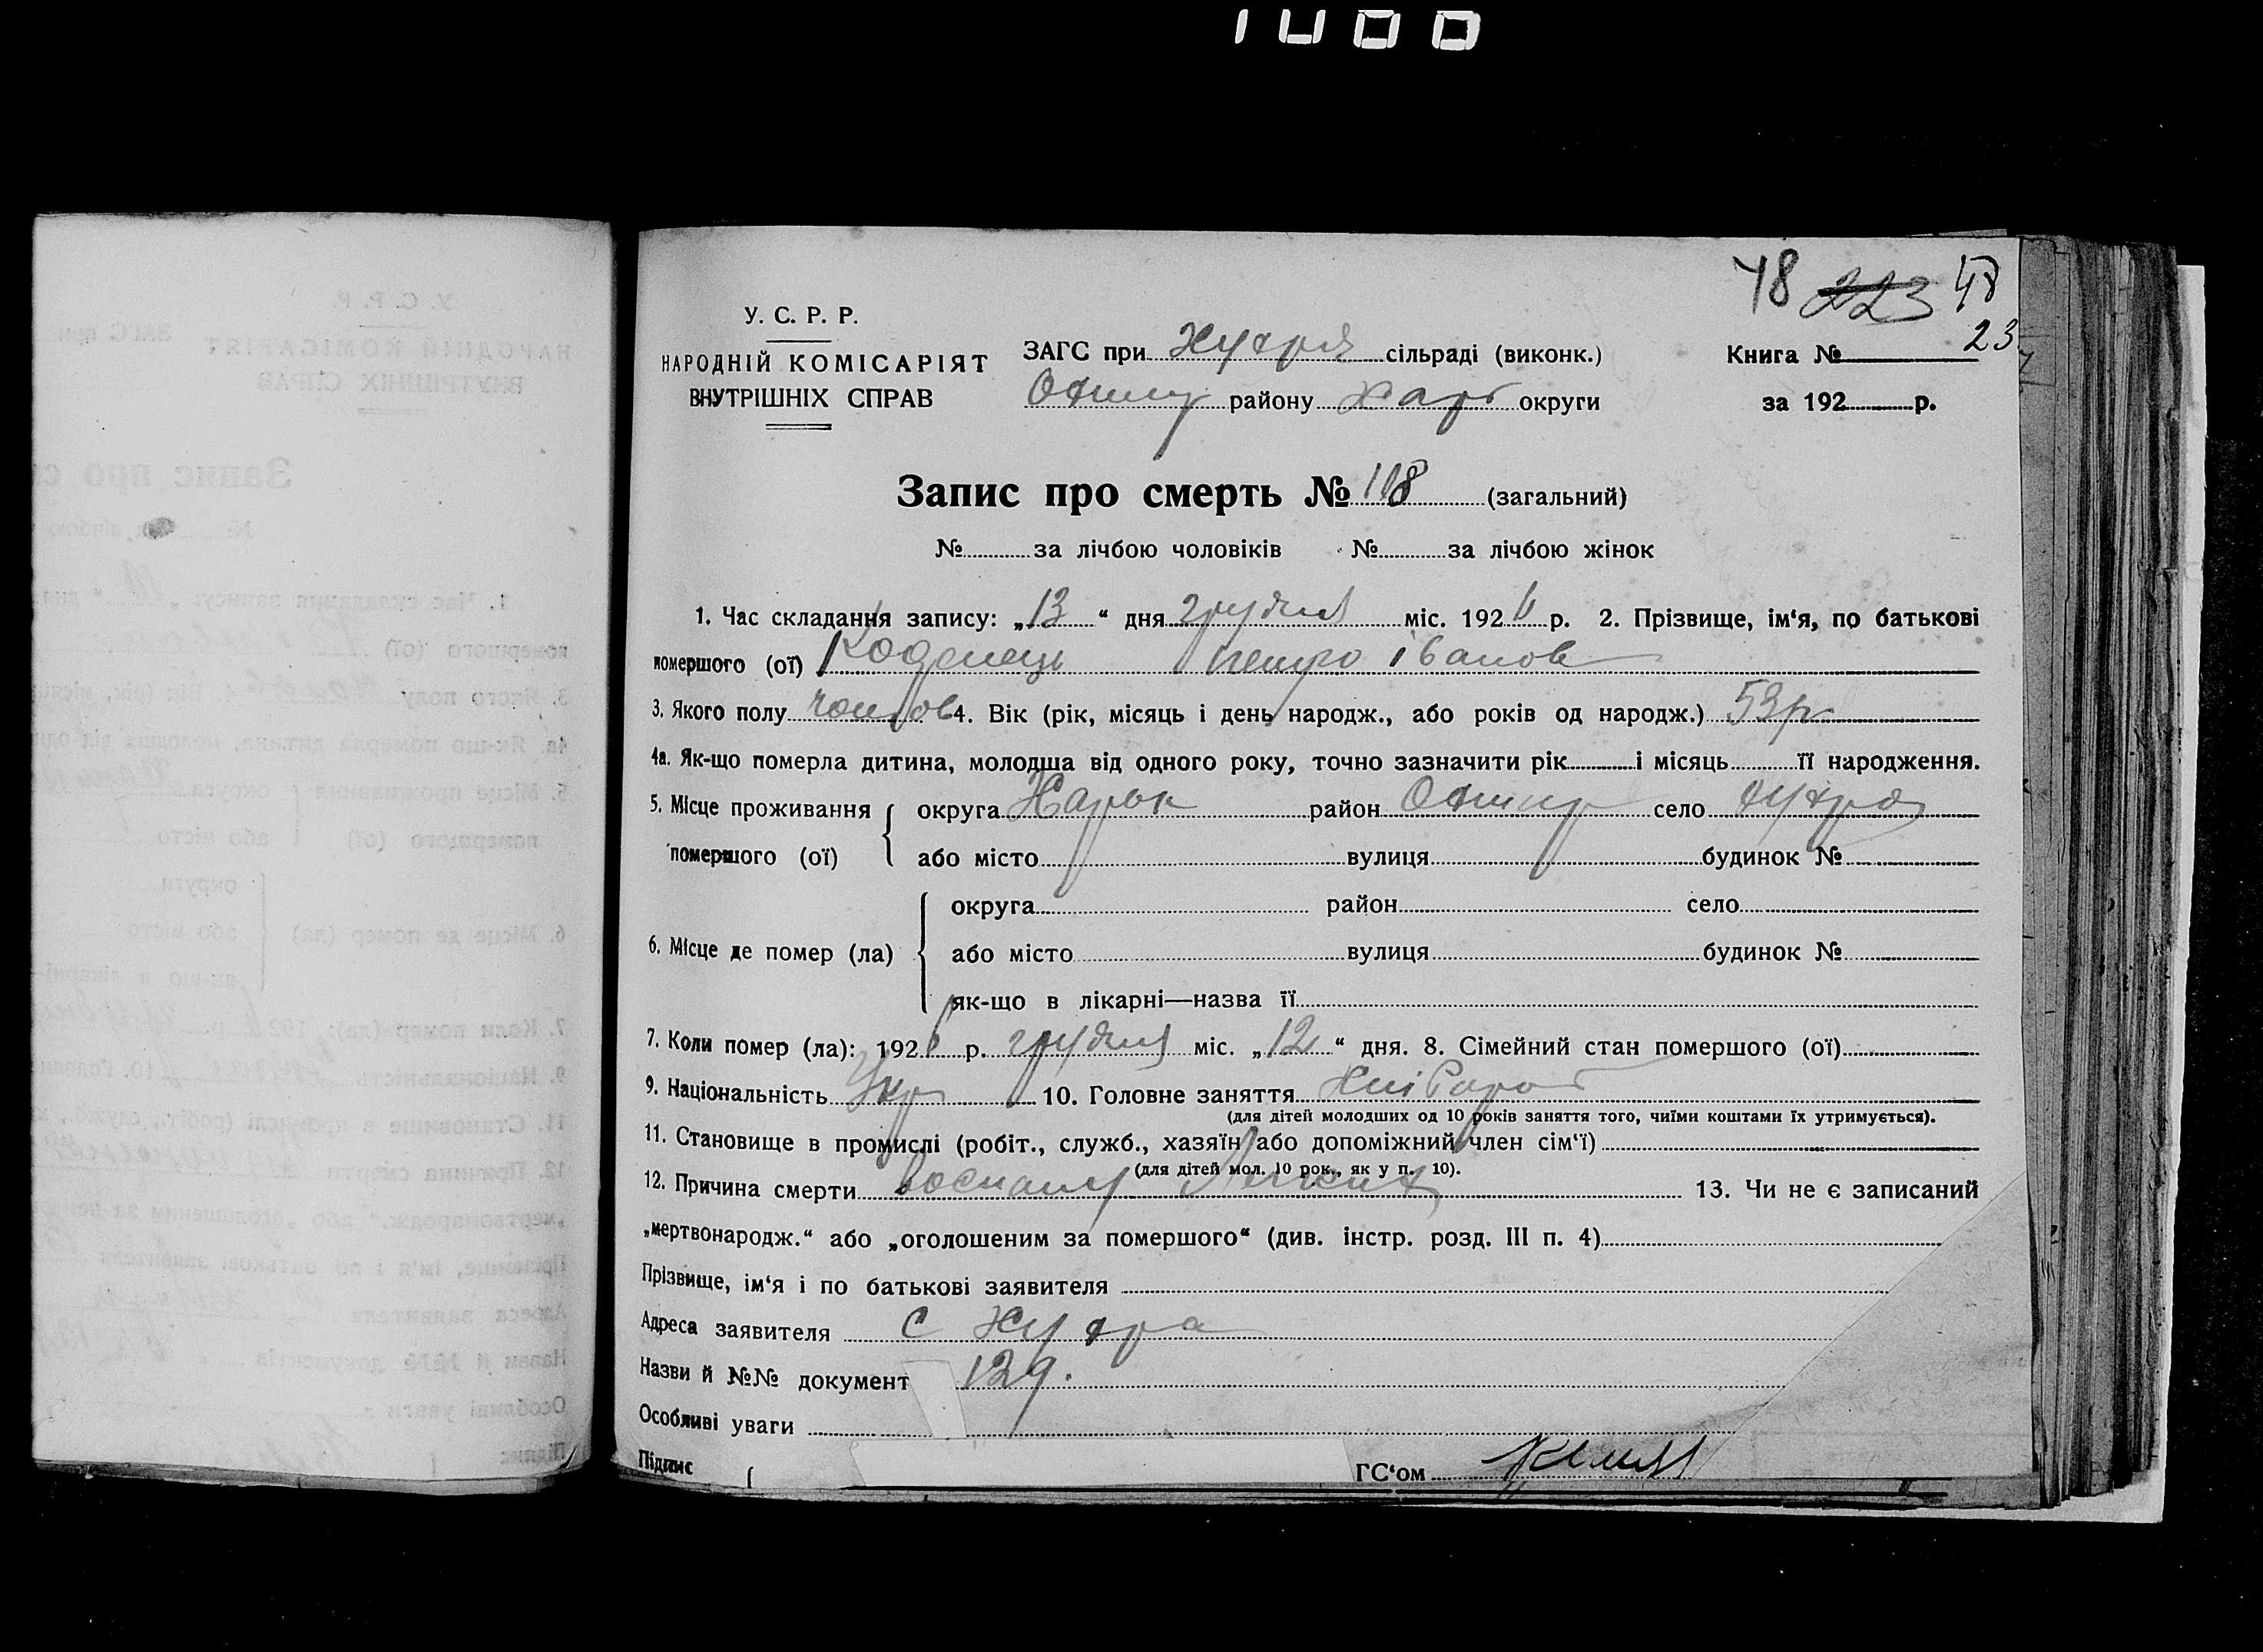 1000
48 223 48
23
У. С. Р. Р.
НАРОДНІЙ КОМІСАРІЯТ
ВНУТРІШНІХ СПРАВ
ЗАГС при сільраді (виконк.)
району Харк округи
Книга №
за 192 р.
Запис про смерть № 118 (загальний)
№ за лічбою чоловіків № за лічбою жінок
1. Час складання запису: „13“ дня грудня міс. 1926 р. 2. Прізвище, ім‘я, по батькові
помершого (ої) Петро Іванов
3. Якого полу чолов 4. Вік (рік, місяць і день народж., або років од народж.) 53 р
4а. Як-що померла дитина, молодша від одного року, точно зазначити рік і місяць її народження.
5. Місце проживання округа Харьк район село
помершого (ої) або місто вулиця будинок №
округа район село
6. Місце де помер (ла) або місто вулиця будинок №
як-що в лікарні—назва її
7. Коли помер (ла): 1926 р. грудня міс. „12“ дня. 8. Сімейний стан помершого (ої)
9. Національність Укр 10. Головне заняття Хлібороб
(для дітей молодших од 10 років заняття того, чиїми коштами їх утримується).
11. Становище в промислі (робіт., служб., хазяїн або допоміжний член сім‘ї)
(для дітей мол. 10 рок., як у п. 10).
12. Причина смерти 13. Чи не є записаний
„мертвонародж.“ або „оголошеним за помершого“ (див. інстр. розд. III п. 4)
Прізвище, ім‘я і по батькові заявителя
Адреса заявителя с
Назви й №№ документ 129.
Особливі уваги
Підпис ГС‘ом